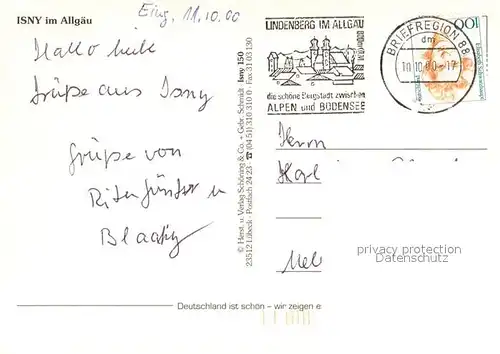 ISNY im Allgäu
Eing. 11.10.00
Hallo
Grüße aus Isny
Grüße von
LINDENBERG IM ALLGÄU
die schöne Bergstadt zwischen
ALPEN und BODENSEE
BRIEFREGION 88
dm
10.10.00-17
100
Herrn
Karl
© Herst. u. Verlag Schöning & Co. + Gebr. Schmidt · Isny 150
23512 Lübeck · Postfach 24 23 · ☎ (04 51) 310 310 0 · Fax 31 03 130
privacy protection
Datenschutz
Deutschland ist schön – wir zeigen e